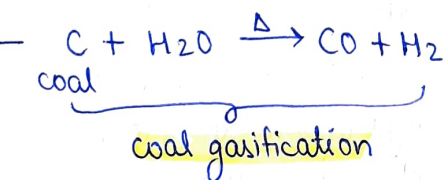 – C + H2O Δ→ CO + H2
coal
coal gasification